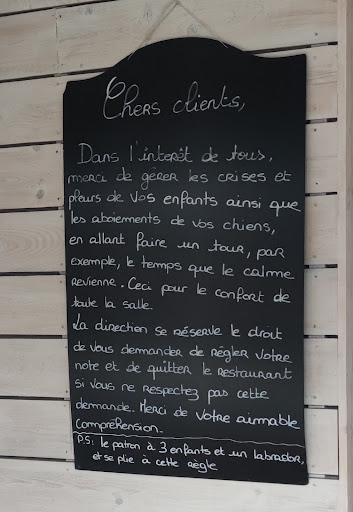 Chers clients,
Dans l'interêt de tous,
merci de gerer les crises et
pleurs de vos enfants ainsi que
les aboiements de vos chiens,
en allant faire un tour, par
exemple, le temps que le calme
revienne. Ceci pour le confort de
toute la salle.
La direction se réserve le droit
de vous demander de régler votre
note et de quitter le restaurant
si vous ne respectez pas cette
demande. Merci de votre aimable
compréhension.
P.S: le patron à 3 enfants et un labrador,
et se plie à cette règle